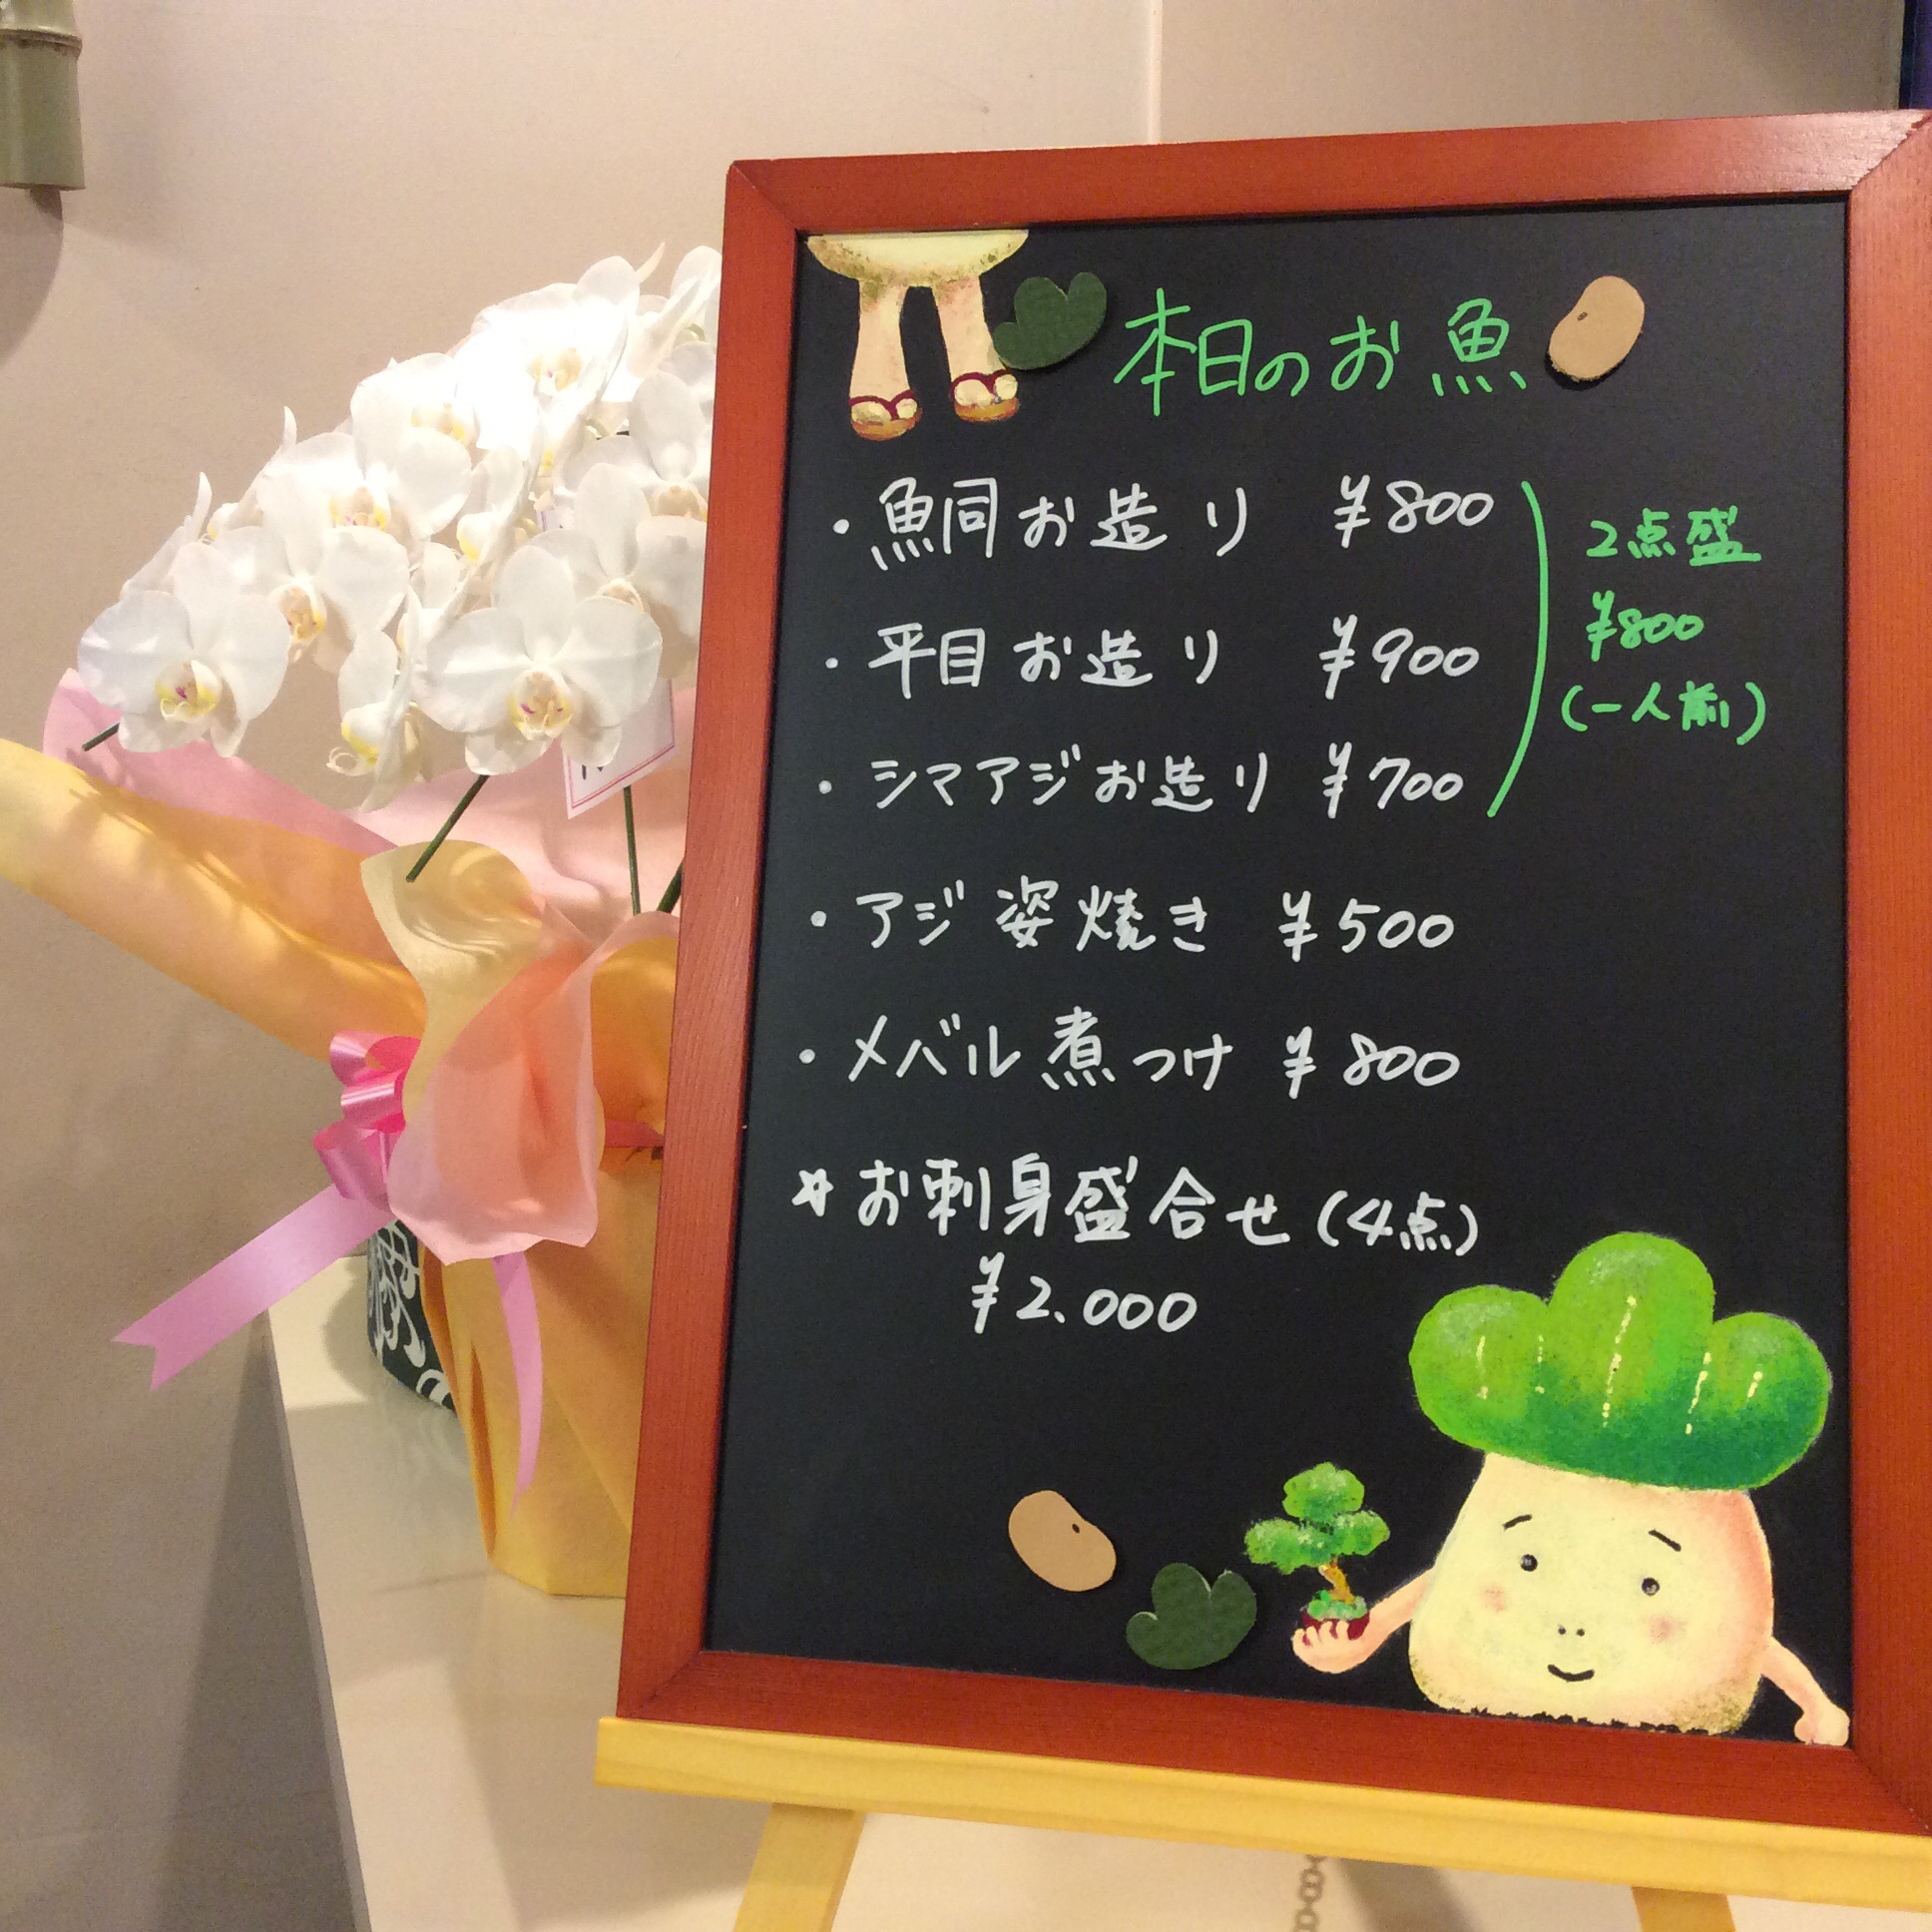 本日のお魚
・鮦お造り ¥800
・平目お造り ¥900
・シマアジお造り ¥700
2点盛
¥800
(一人前)
・アジ姿焼き ¥500
・メバル煮つけ ¥800
*お刺身盛合せ(4点)
¥2.000